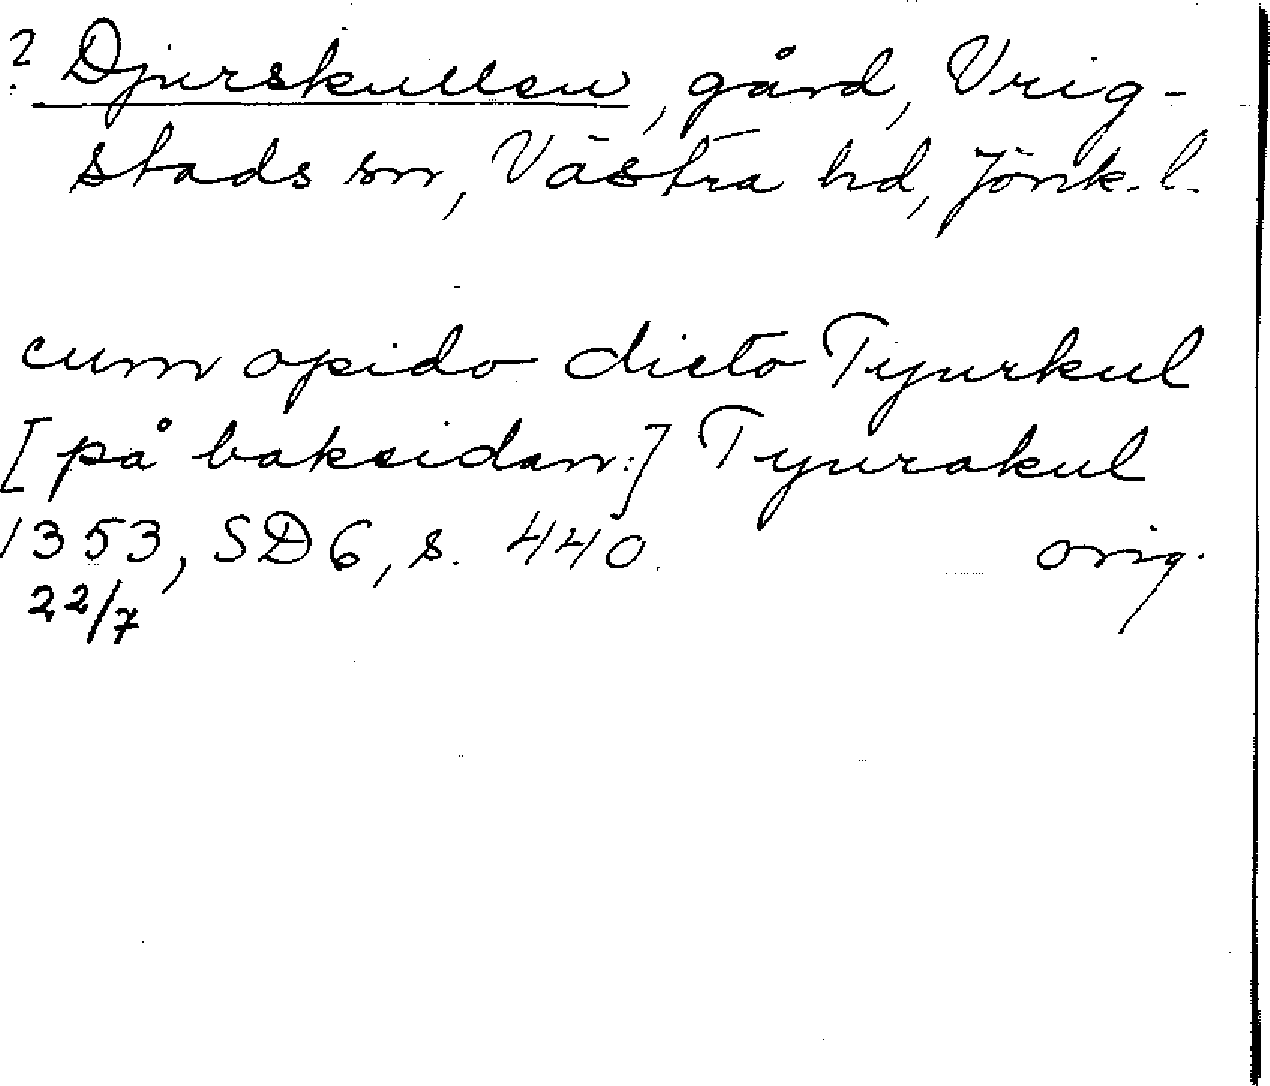 ? Djurskullen, gård, Vrig-
stads sn, Västra hd, Jönk. l.
cum opido dicto Tyurkul
[på baksidan:] Tyurakul
1353, SD 6, s. 440. orig.
22/7